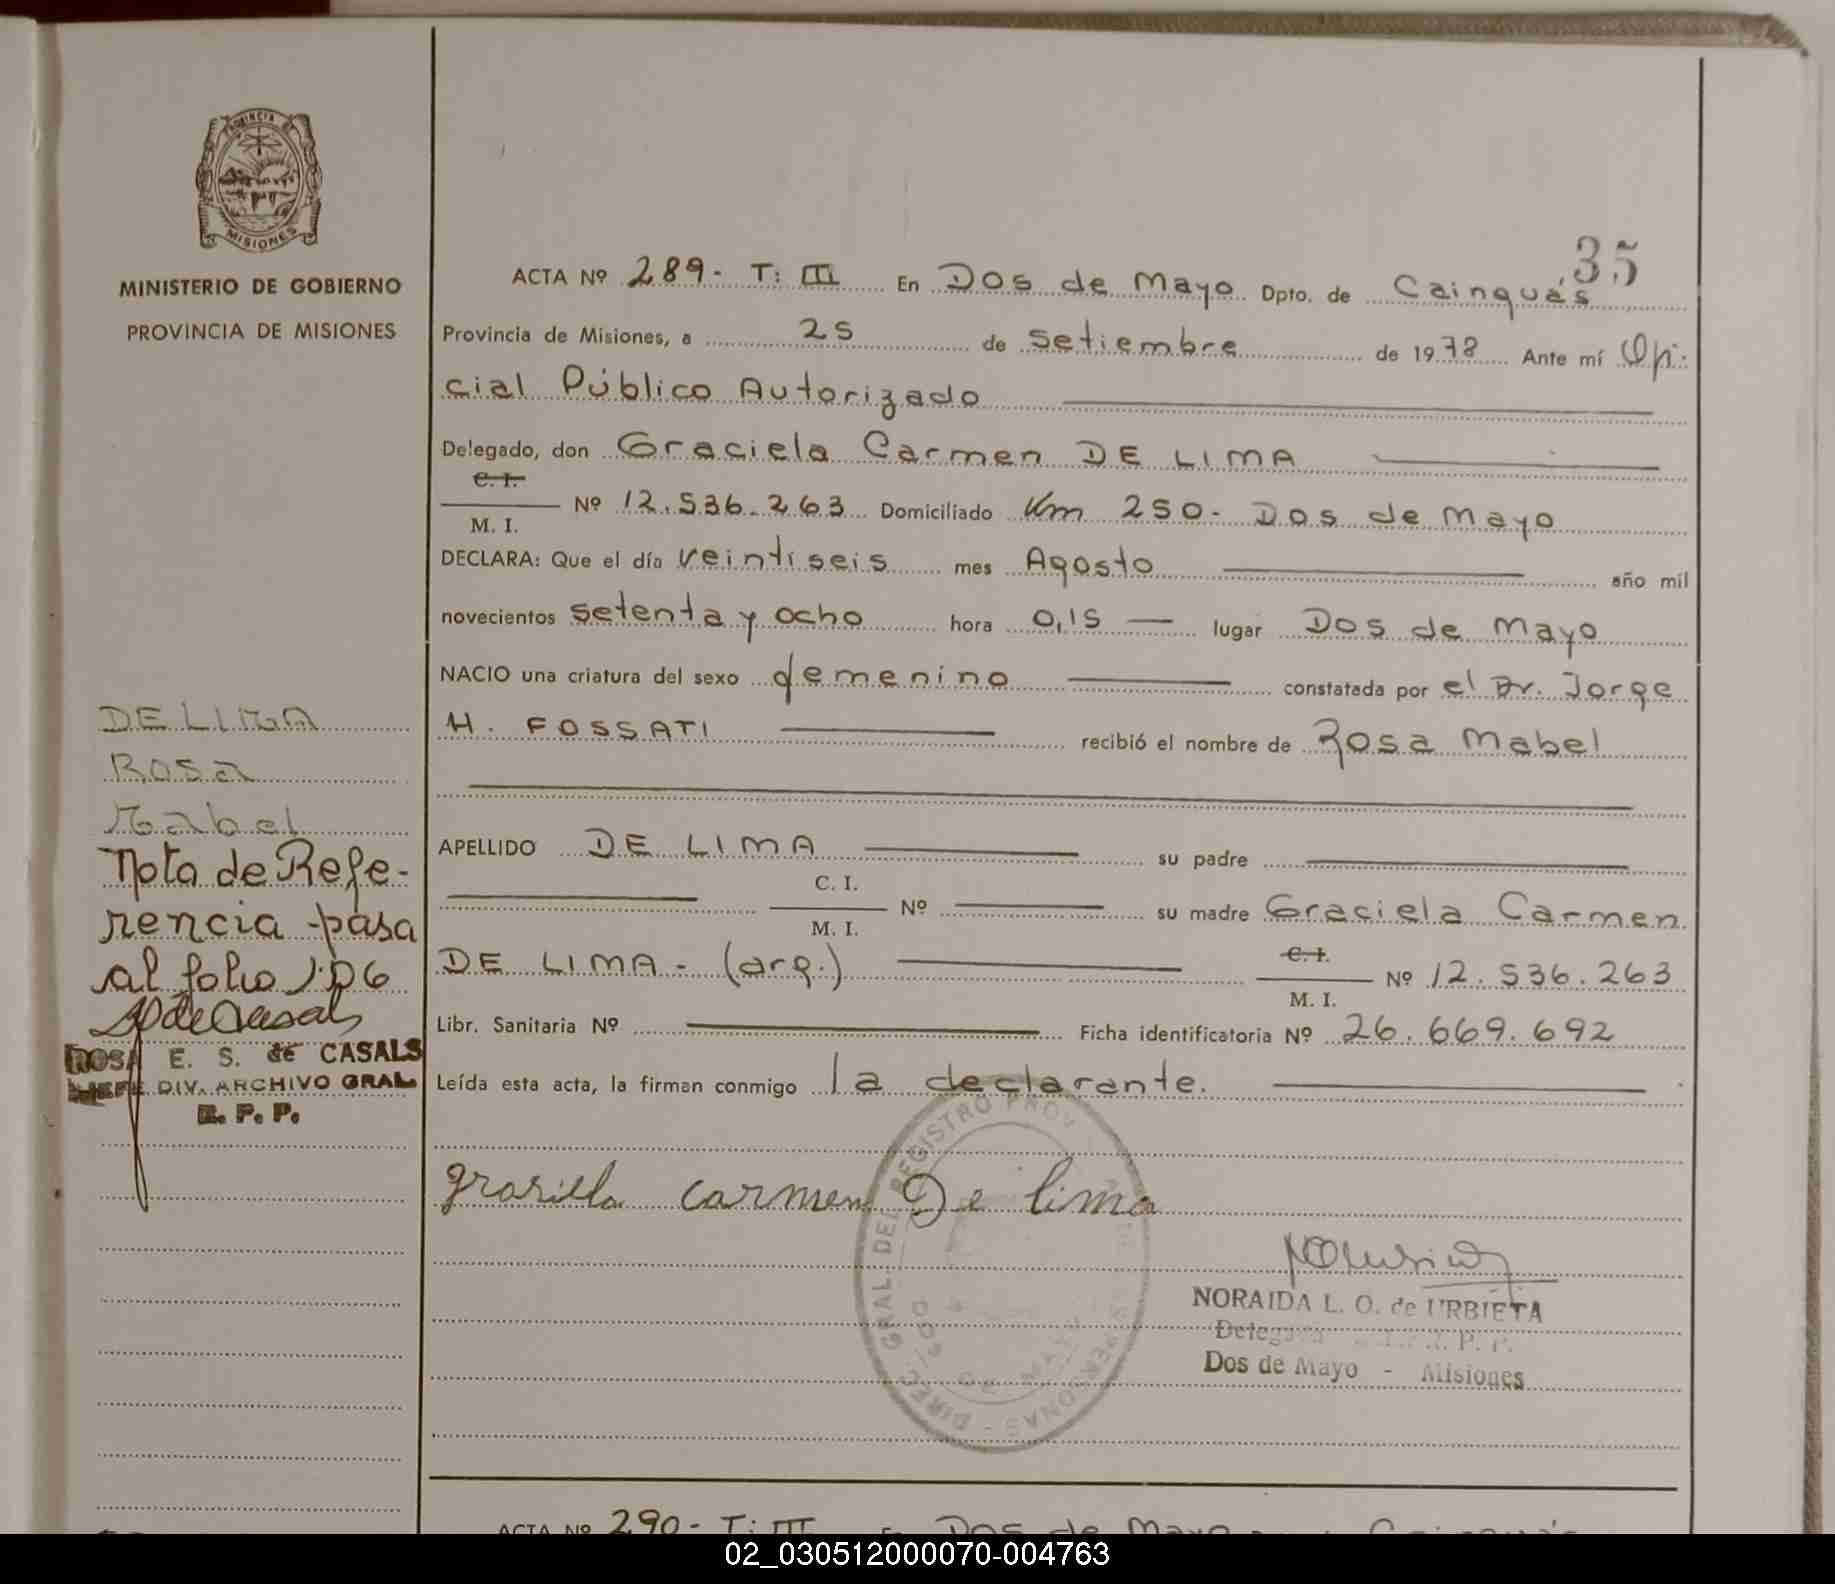 35
PROVINCIA DE
MISIONES
MINISTERIO DE GOBIERNO
PROVINCIA DE MISIONES
ACTA Nº 289- T: III En Dos de Mayo Dpto. de Cainguás
Provincia de Misiones, a 25 de Setiembre de 1978 Ante mí Ofi-
cial Público Autorizado
Delegado, don Graciela Carmen DE LIMA
C. I.
M. I. Nº 12.536.263 Domiciliado Km 250- Dos de Mayo
DECLARA: Que el día veintiseis mes Agosto año mil
novecientos setenta y ocho hora 0,15 lugar Dos de Mayo
NACIO una criatura del sexo femenino constatada por el Dr. Jorge
H. FOSSATI recibió el nombre de Rosa Mabel
APELLIDO DE LIMA su padre
C. I.
M. I. Nº su madre Graciela Carmen
DE LIMA - (arg.) C. I.
M. I. Nº 12.536.263
Libr. Sanitaria Nº Ficha identificatoria Nº 26.669.692
Leída esta acta, la firman conmigo la declarante.
DE LIMA
Rosa
Mabel
Nota de Refe-
rencia pasa
al folio 106
ROSA E. S. de CASALS
JEFE DIV. ARCHIVO GRAL
R. P. P.
Grasiella Carmen De lima
DIREC. GRAL. DEL REGISTRO PROV. PERSONAS
NORAIDA L. O. de URBIETA
R. P. P.
Dos de Mayo - Misiones
ACTA Nº 290- T: III En Dos de Mayo Cainguás
02_030512000070-004763